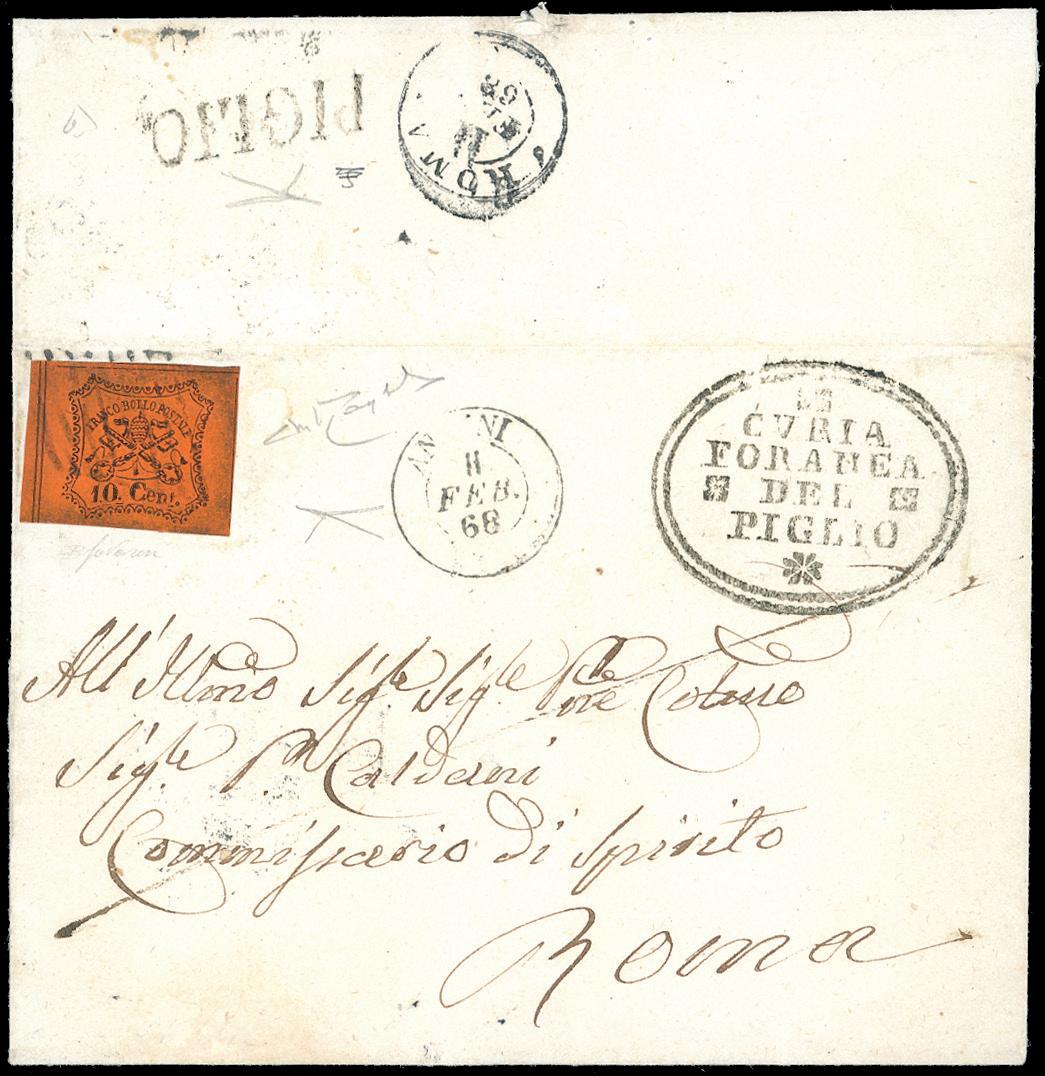 PIGLIO
ROMA
11
FEB
68
FRANCO BOLLO POSTALE
10. Cent.
ANAGNI
11
FEB.
68
LA
CVRIA
FORANEA
DEL
PIGLIO
All' Illmo Sigle Sigle Colmo
Sigle Caldani
Commissario di Spirito
Roma